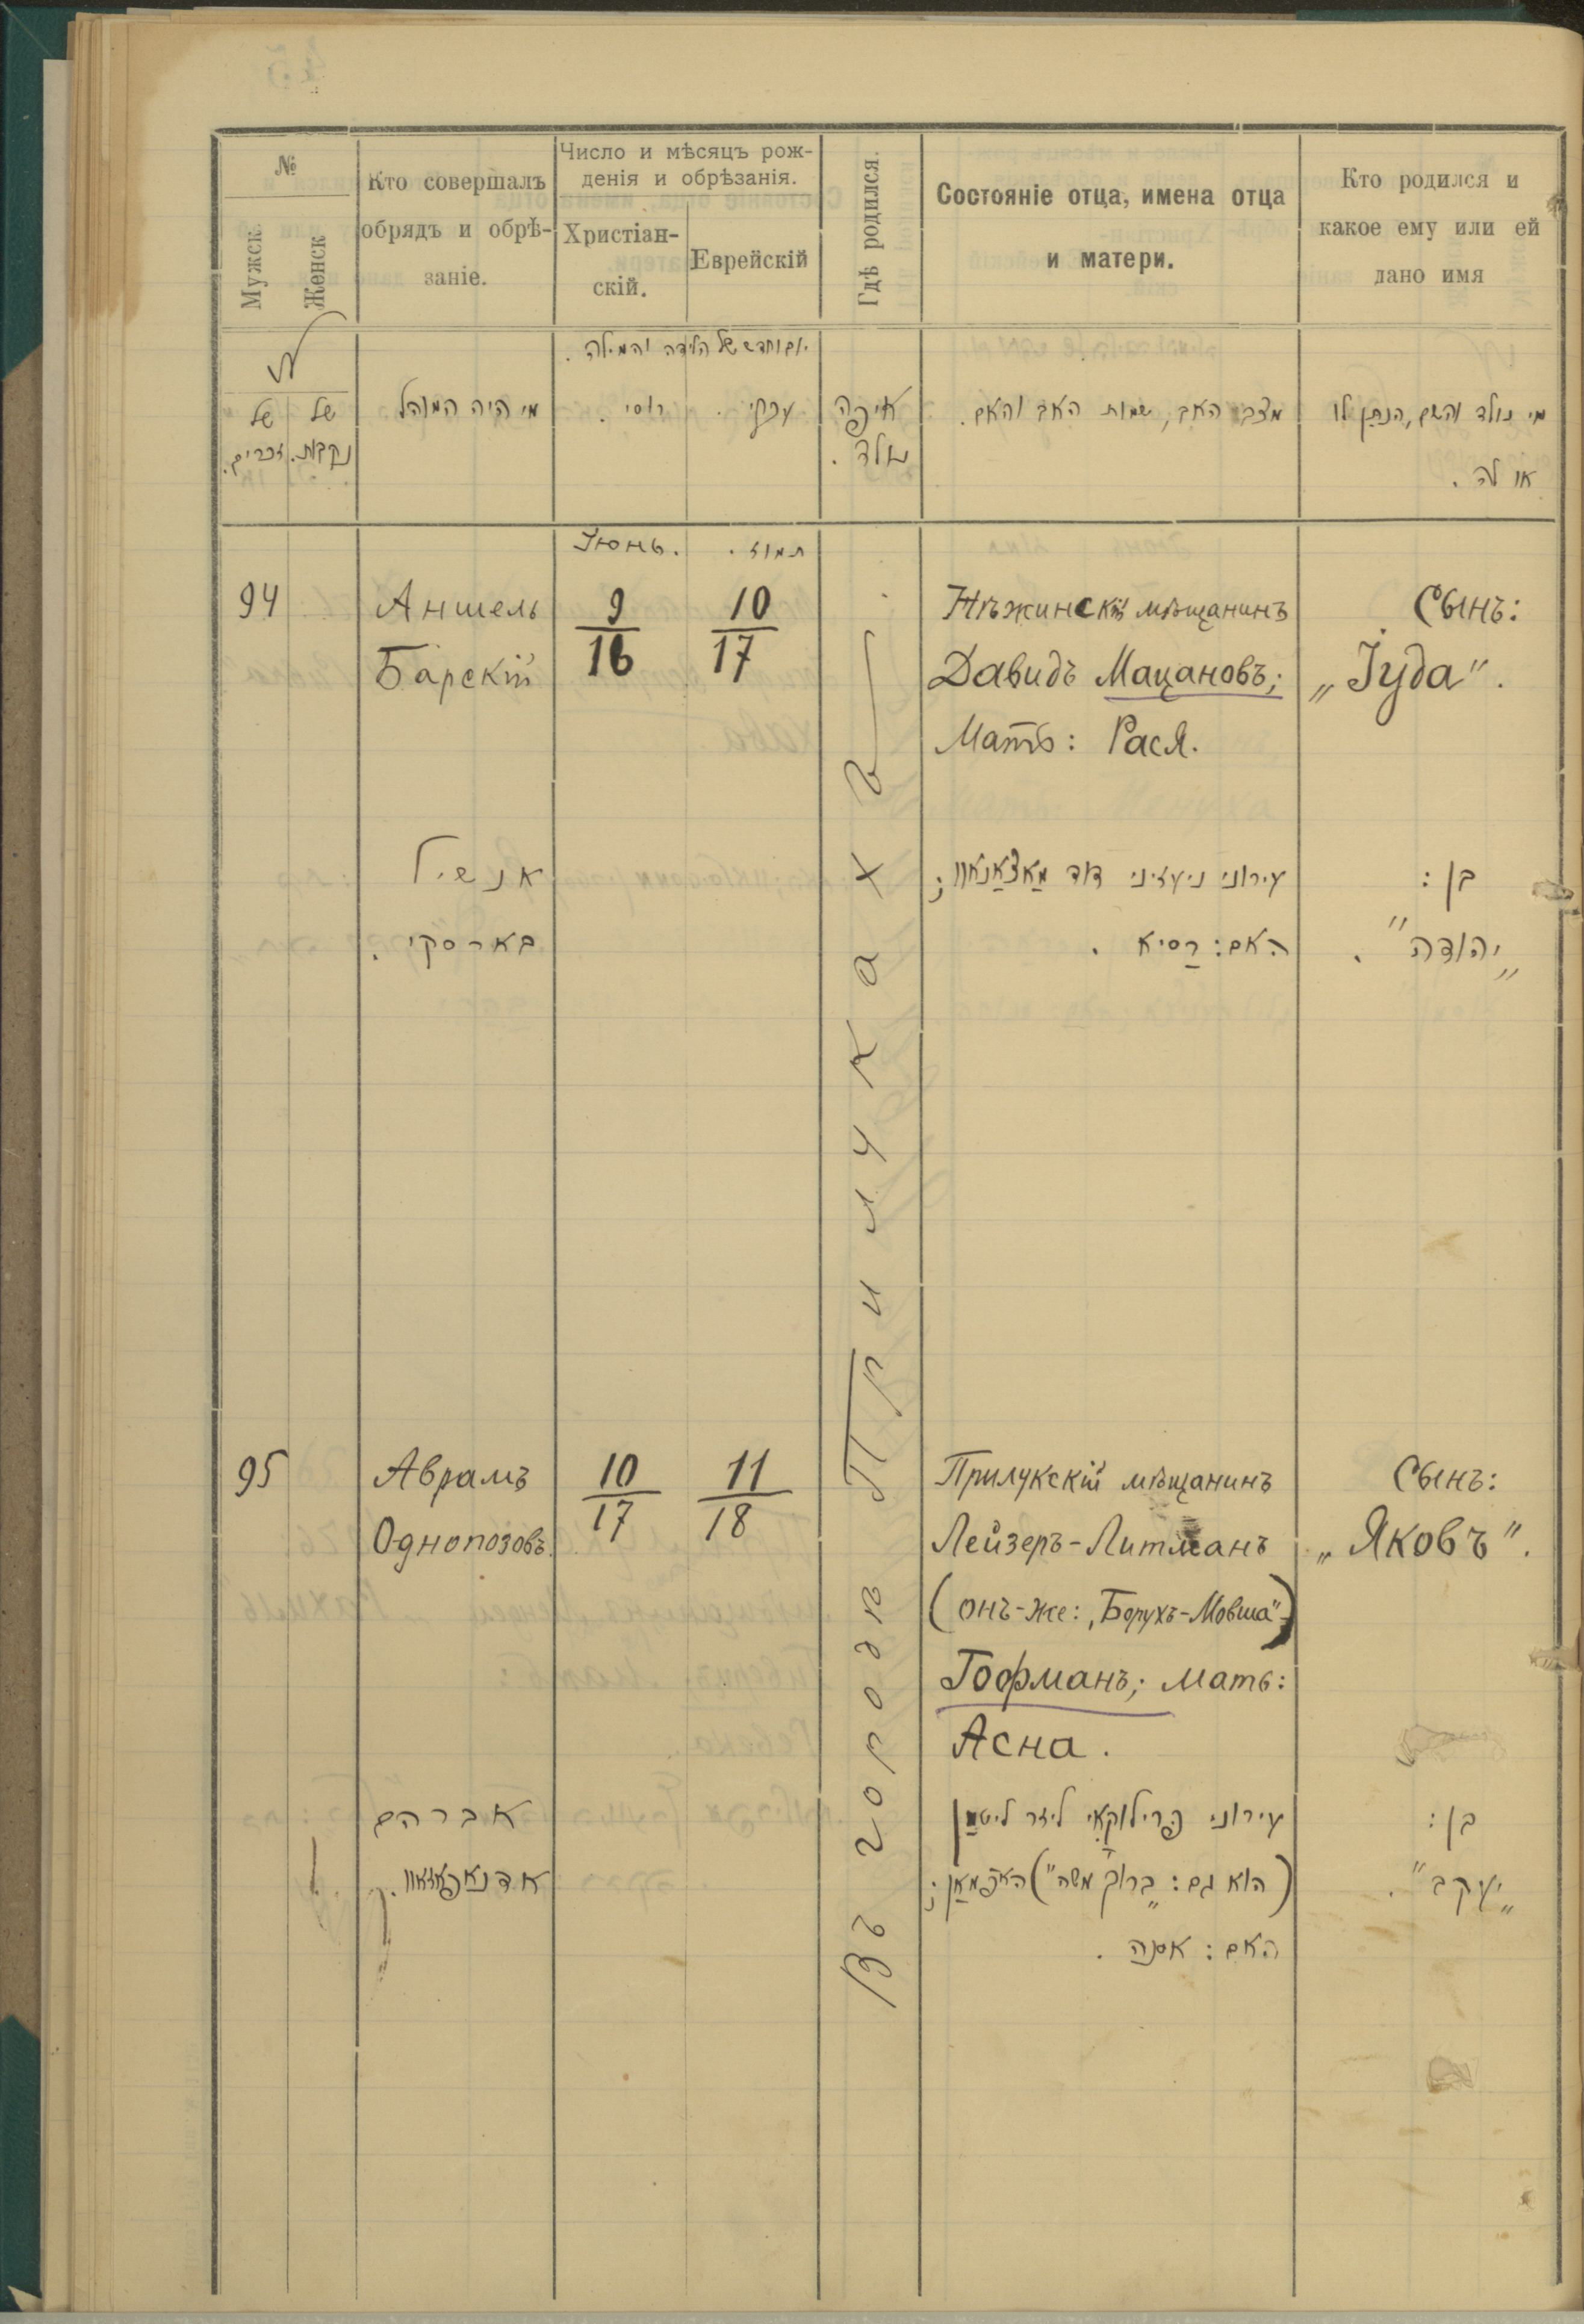 №
Мужск.
Женск
Кто совершалъ
обрядъ и обрѣ-
заніе.
Число и мѣсяцъ рож-
денія и обрѣзанія.
Христіан-
скій.
Еврейскій
Гдѣ родился.
Состояніе отца, имена отца
и матери.
Кто родился и
какое ему или ей
дано имя
יום וחדש של הלידה והמילה.
של זכרים.
של נקבות.
מי היה המוהל
רוסי.
עברי.
איפה
נולד.
מצב האב, שמות האב והאם.
מי נולד והשם, הנתן לו
או לה.
Іюнь.
תמוז.
94
Аншель
Барскій
9
16
10
17
Нѣжинскій мѣщанинъ
Давидъ Мацановъ;
Мать: Рася.
Сынъ:
„Іуда".
אנשיל
בארסקי.
עירוני ניעזיני דוד מאַצאַנאוו;
האם: רַסיא.
בן:
„יהודה".
Въ городѣ Прилукахъ
95
Аврамъ
Однопозовъ.
10
17
11
18
Прилукскій мѣщанинъ
Лейзеръ-Литманъ
(онъ-же: „Борухъ-Мовша")
Гофманъ; мать:
Асна.
Сынъ:
„Яковъ".
אברהם
אדנאפאזאוו.
עירוני פרילוקאי ליזר ליטמַן
(הוא גם: „ברוך משה") האפמאַן;
האם: אסנה.
בן:
„יעקב".